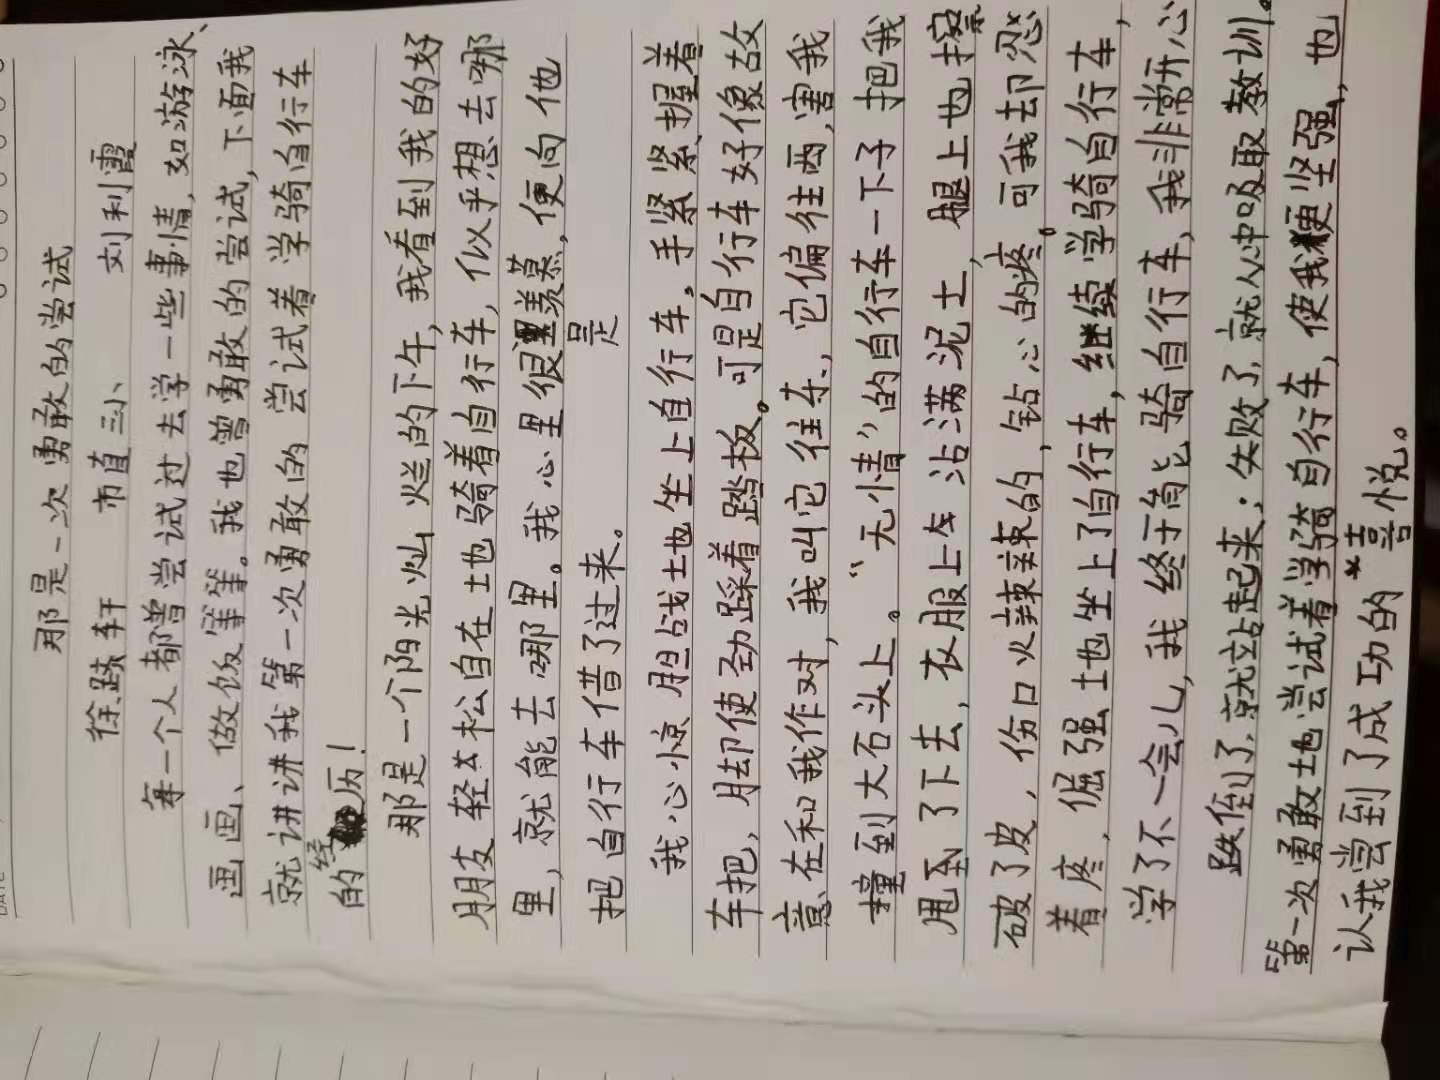 那是一次勇敢的尝试
徐轩 市直三小 刘利霞
每一个人都曾尝试过去学一些事情,如游泳、
画画、做饭等等。我也曾勇敢的尝试,下面我
就讲讲我第一次勇敢的尝试着学骑自行车
的经历!
那是一个阳光灿烂的下午,我看到我的好
朋友轻松自在土也骑着自行车,似乎想去哪
里,就能去哪里。我心里很羡慕,便向他
是
把自行车借了过来。
我心惊胆战土也坐上自行车。手紧紧握着
车把,脚却使劲踩着踏板。可是自行车好像故
意在和我作对,我叫它往东,它偏往西,害我
撞到大石头上。“无情”的自行车一下子把我
甩到了下去,衣服上沾满泥土,腿上也擦
破了皮,伤口火辣辣的,钻心的疼。可我却忍
着疼,倔强土也坐上了自行车,继续学骑自行车,
学了不一会儿,我终于能骑自行车,我非常开心
跌倒了就站起来;失败了,就从中吸取教训。
第一次勇敢土也尝试着学骑自行车,使我更坚强,也
让我尝到了成功的喜悦。